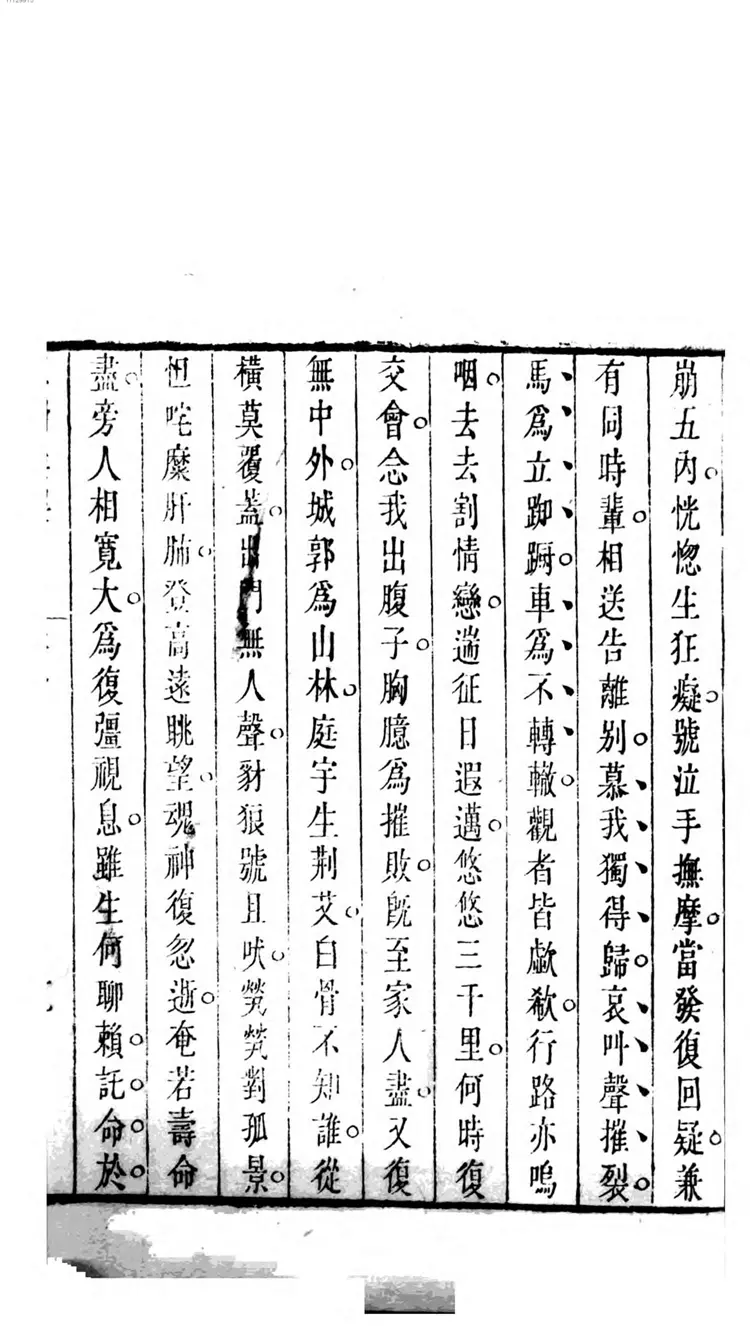 崩五内恍惚生狂癡號泣手撫摩當發復回疑兼
有同時輩相送告離别慕我獨得歸哀叫聲摧裂
馬爲立踟蹰車爲不轉轍觀者皆歔欷行路亦嗚
咽去去割情戀遄征日遐邁悠悠三千里何時復
交會念我出腹子胸臆爲摧敗旣至家人盡又復
無中外城郭爲山林庭宇生荆艾白骨不知誰從
橫莫覆蓋出門無人聲豺狼號且吠煢煢對孤景
怛咤糜肝肺登高遠眺望魂神復忽逝奄若壽命
盡旁人相寬大爲復彊視息雖生何聊賴託命於